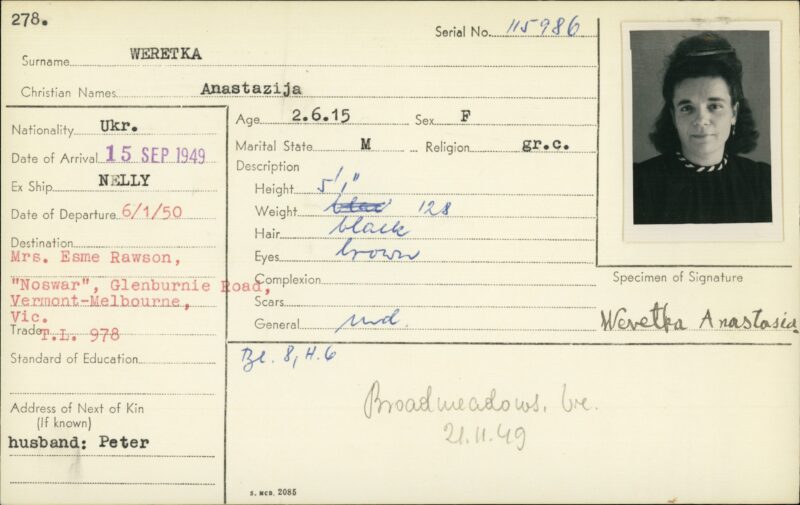 278.
Serial No. 115986
Surname WERETKA
Christian Names Anastazija
Nationality Ukr.
Date of Arrival 15 SEP 1949
Ex Ship NELLY
Date of Departure 6/1/50
Destination
Mrs. Esme Rawson,
"Noswar", Glenburnie Road,
Vermont-Melbourne,
Vic.
Trade T.L. 978
Standard of Education
Address of Next of Kin
(If known)
husband: Peter
Age 2.6.15 Sex F
Marital State M Religion gr.c.
Description
Height 5'1"
Weight 128
Hair black
Eyes brown
Complexion
Scars
General
Bl. 8, H.6
Broadmeadows, Vic.
21.11.49
S. MCD. 2085
Specimen of Signature
Weretka Anastasia